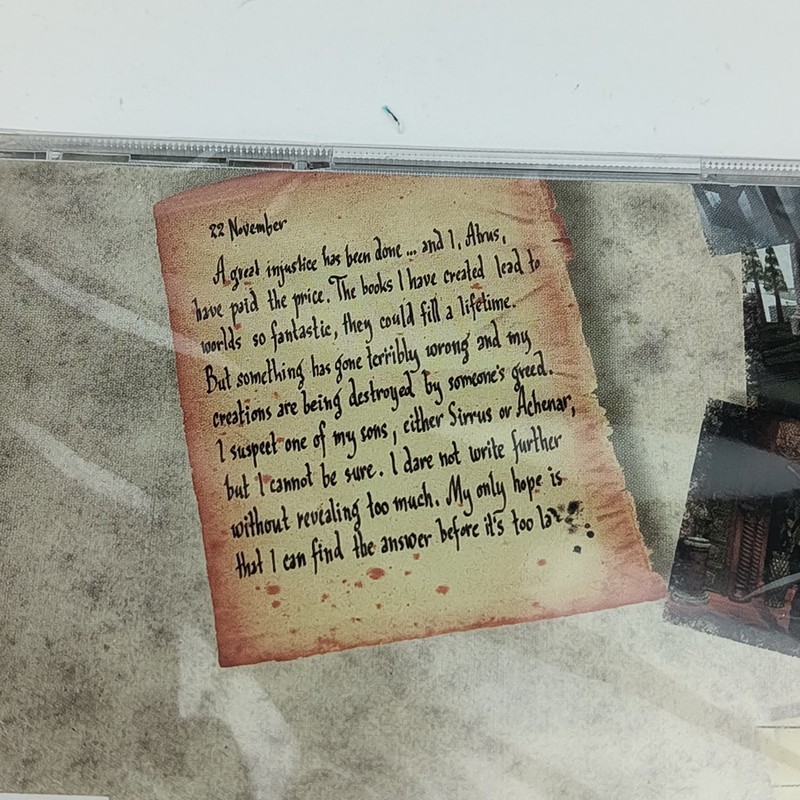 22 November
A great injustice has been done... and I, Atrus,
have paid the price. The books I have created lead to
worlds so fantastic, they could fill a lifetime.
But something has gone terribly wrong and my
creations are being destroyed by someone's greed.
I suspect one of my sons, either Sirrus or Achenar,
but I cannot be sure. I dare not write further
without revealing too much. My only hope is
that I can find the answer before it's too la